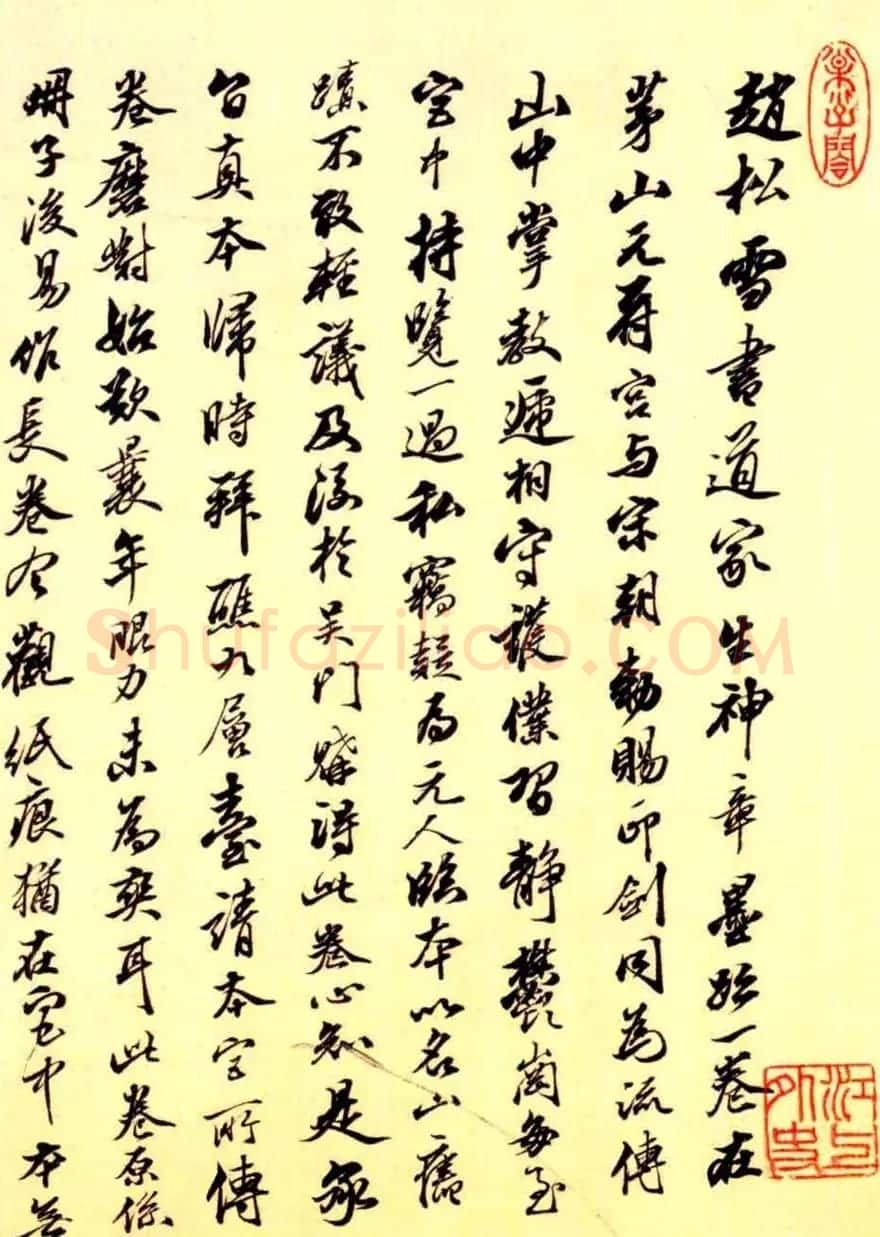 趙松雪書道家生神章墨一卷在
茅山元符宮与宋朝勅賜印劍同為流傳
山中掌教遞相守護僕習靜鬱岡每至
宮中持覽一過私竊疑為元人臨本以名山舊
蹟不敢輕議及後於吳門購得此卷心知是
真本歸時拜醮九層臺請本宮所傳
卷磨對始歎曩年眼力未為爽耳此卷原係
冊子後易作長卷今觀紙痕猶在宮中本無
江上外史
Shufaziliao.COM